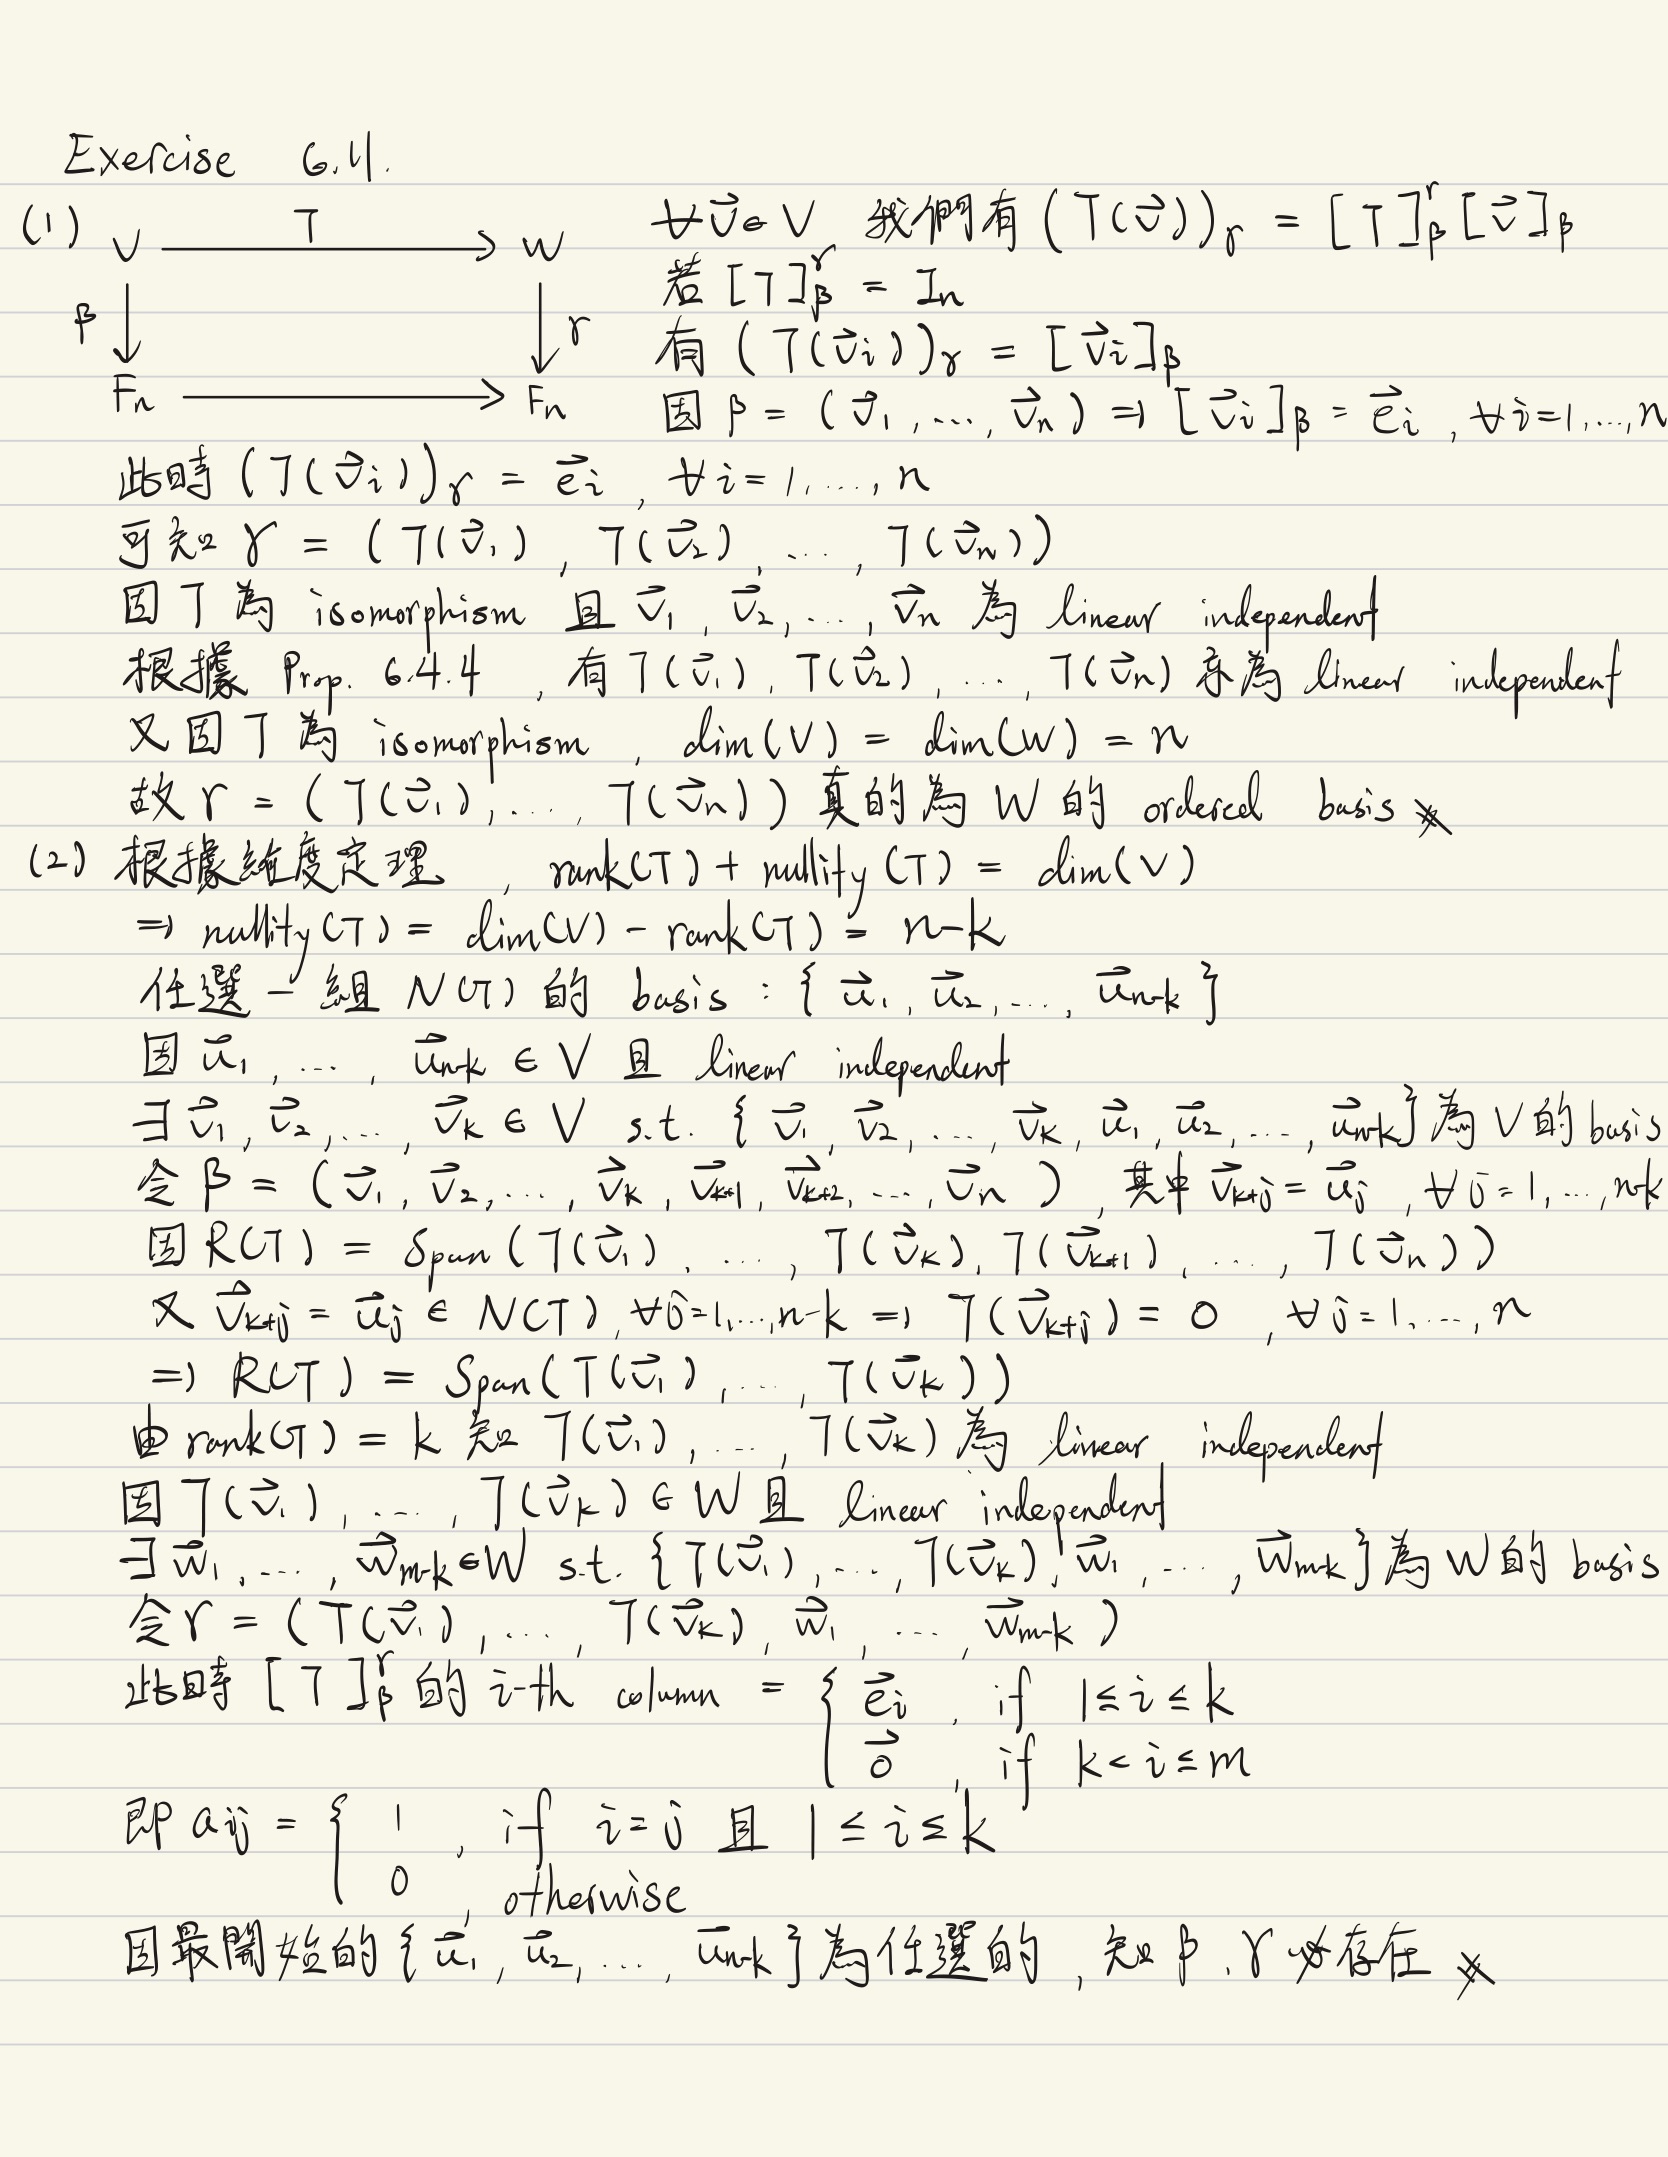 Exercise 6.11.
(1) V T W β γ Fn Fn
∀v⃗∈V 我們有 (T(v⃗))γ = [T]β^γ [v⃗]β
若 [T]β^γ = In
有 (T(v⃗i))γ = [v⃗i]β
因 β = (v⃗1, ..., v⃗n) ⇒ [v⃗i]β = e⃗i, ∀i=1,...,n
此時 (T(v⃗i))γ = e⃗i, ∀i=1,...,n
可知 γ = (T(v⃗1), T(v⃗2), ..., T(v⃗n))
因 T 為 isomorphism 且 v⃗1, v⃗2, ..., v⃗n 為 linear independent
根據 Prop. 6.4.4, 有 T(v⃗1), T(v⃗2), ..., T(v⃗n) 亦為 linear independent
又因 T 為 isomorphism, dim(V) = dim(W) = n
故 γ = (T(v⃗1), ..., T(v⃗n)) 真的為 W 的 ordered basis ※
(2) 根據維度定理, rank(T) + nullity(T) = dim(V)
⇒ nullity(T) = dim(V) - rank(T) = n-k
任選一組 N(T) 的 basis : {u⃗1, u⃗2, ..., u⃗n-k}
因 u⃗1, ..., u⃗n-k ∈ V 且 linear independent
∃ v⃗1, v⃗2, ..., v⃗k ∈ V s.t. {v⃗1, v⃗2, ..., v⃗k, u⃗1, u⃗2, ..., u⃗n-k} 為 V 的 basis
令 β = (v⃗1, v⃗2, ..., v⃗k, v⃗k+1, v⃗k+2, ..., v⃗n), 其中 v⃗k+j = u⃗j, ∀j=1,...,n-k
因 R(T) = Span(T(v⃗1), ..., T(v⃗k), T(v⃗k+1), ..., T(v⃗n))
又 v⃗k+j = u⃗j ∈ N(T), ∀j=1,...,n-k ⇒ T(v⃗k+j) = 0, ∀j=1,...,n
⇒ R(T) = Span(T(v⃗1), ..., T(v⃗k))
由 rank(T) = k 知 T(v⃗1), ..., T(v⃗k) 為 linear independent
因 T(v⃗1), ..., T(v⃗k) ∈ W 且 linear independent
∃ w⃗1, ..., w⃗m-k ∈ W s.t. {T(v⃗1), ..., T(v⃗k), w⃗1, ..., w⃗m-k} 為 W 的 basis
令 γ = (T(v⃗1), ..., T(v⃗k), w⃗1, ..., w⃗m-k)
此時 [T]β^γ 的 i-th column = { e⃗i, if 1≤i≤k
0⃗, if k<i≤m
即 aij = { 1, if i=j 且 1≤i≤k
0, otherwise
因最開始的 {u⃗1, u⃗2, ..., u⃗n-k} 為任選的, 知 β, γ 必存在 ※